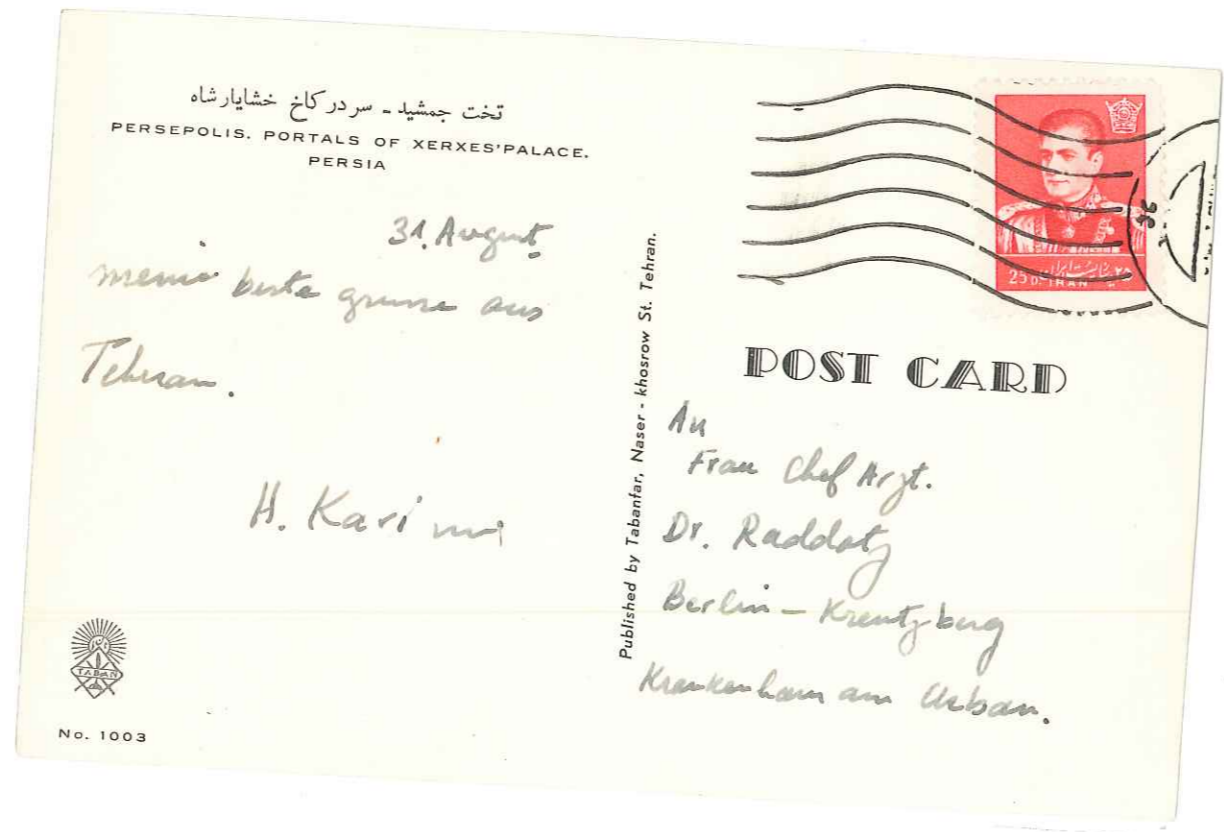 تخت جمشید - سردر کاخ خشایارشاه
PERSEPOLIS. PORTALS OF XERXES'PALACE.
PERSIA
31. August
meine beste grusse aus
Tehran.
H. Karimi
TABAN
No. 1003
Published by Tabanfar, Naser - khosrow St. Tehran.
25 D. IRAN
POST CARD
An
Frau Chef Arzt.
Dr. Raddatz
Berlin - Kreutzberg
Krankenhaus am Urban.